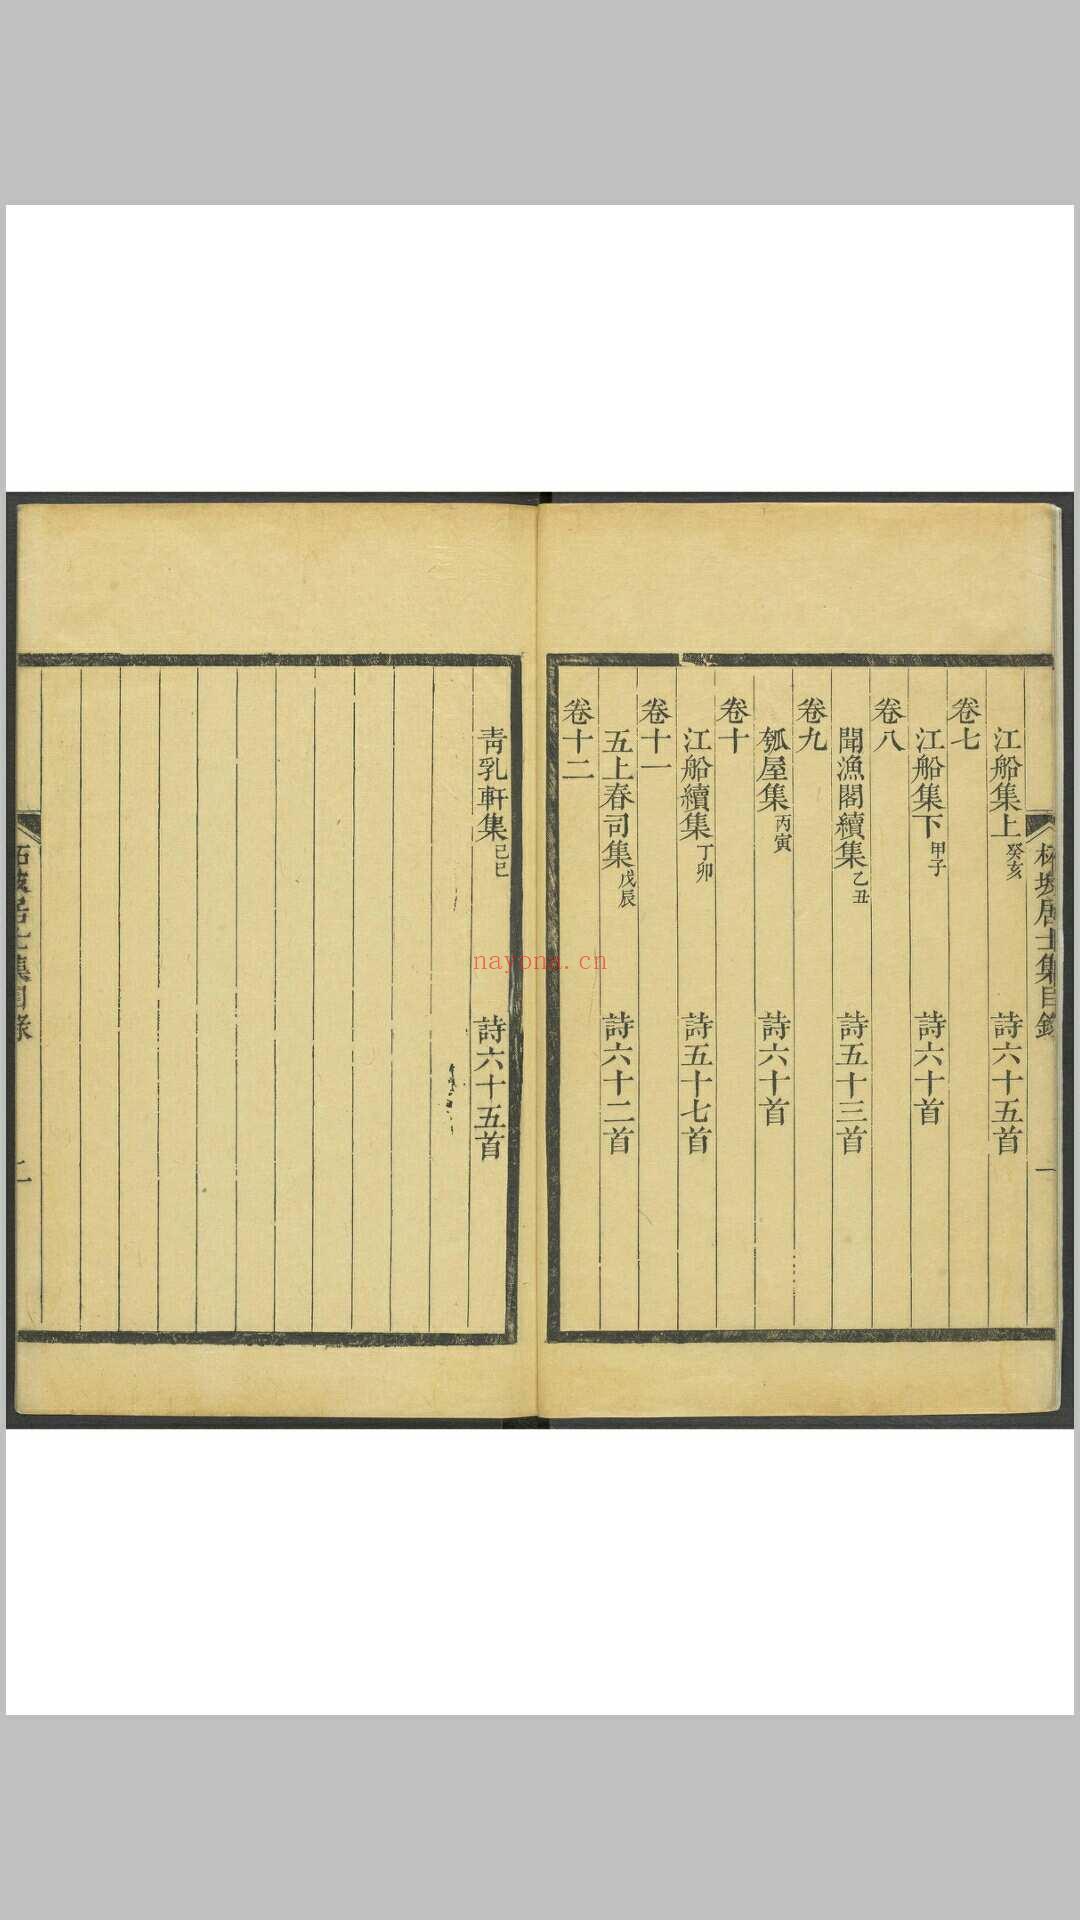 江船集上癸亥 詩六十五首
卷七
江船集下甲子 詩六十首
卷八
聞漁閣續集乙丑 詩五十三首
卷九
瓠屋集丙寅 詩六十首
卷十
江船續集丁卯 詩五十七首
卷十一
五上春司集戊辰 詩六十二首
卷十二
一
青乳軒集己巳 詩六十五首
居士集目錄
二
nayona.cn